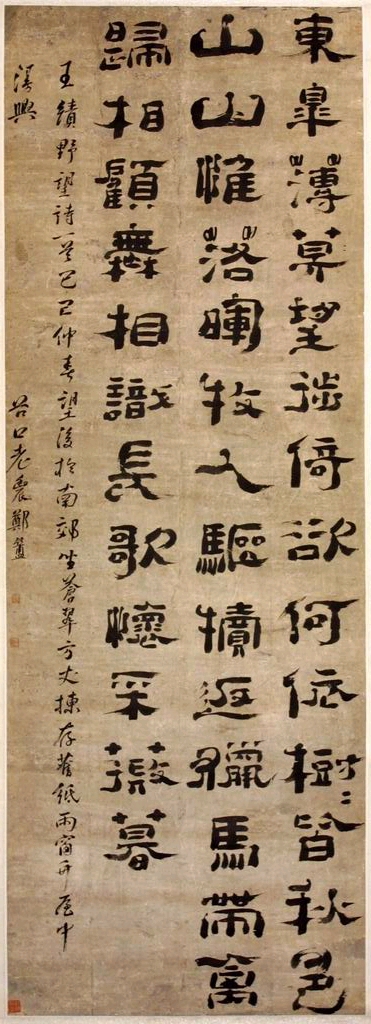 東皐薄莫望徙倚欲何依樹〻皆秋色
山山惟落暉牧人驅犢返獵馬帶禽
歸相顧無相識長歌懷采薇暮
王績野望詩一首己巳仲春望後於南郊坐蒼翠方丈揀存舊紙雨窗中
漫興
谷口老農鄭簠